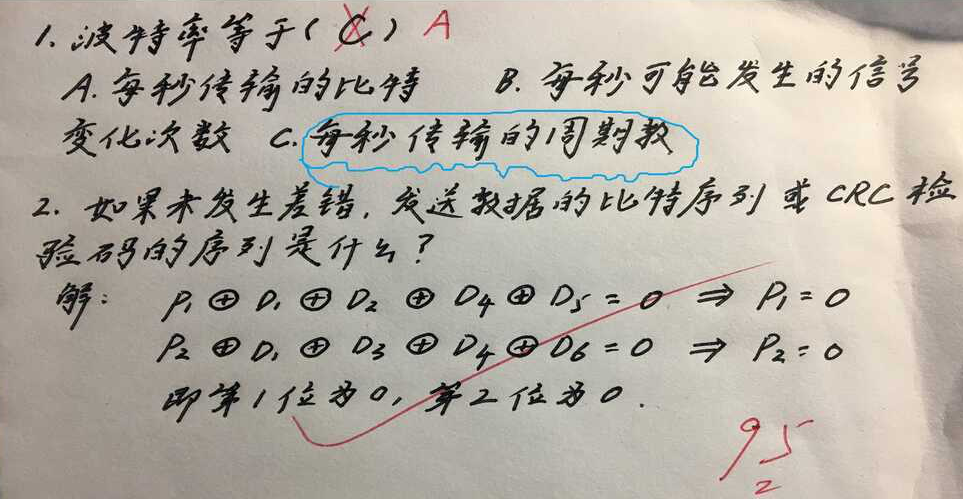 1. 波特率等于( C ) A
A. 每秒传输的比特 B. 每秒可能发生的信号
变化次数 C. 每秒传输的周期数
2. 如果未发生差错, 发送数据的比特序列或CRC检
验码的序列是什么?
解: P₁⊕D₁⊕D₂⊕D₄⊕D₅=0 ⇒ P₁=0
P₂⊕D₁⊕D₃⊕D₄⊕D₆=0 ⇒ P₂=0
即第1位为0, 第2位为0.
95
2